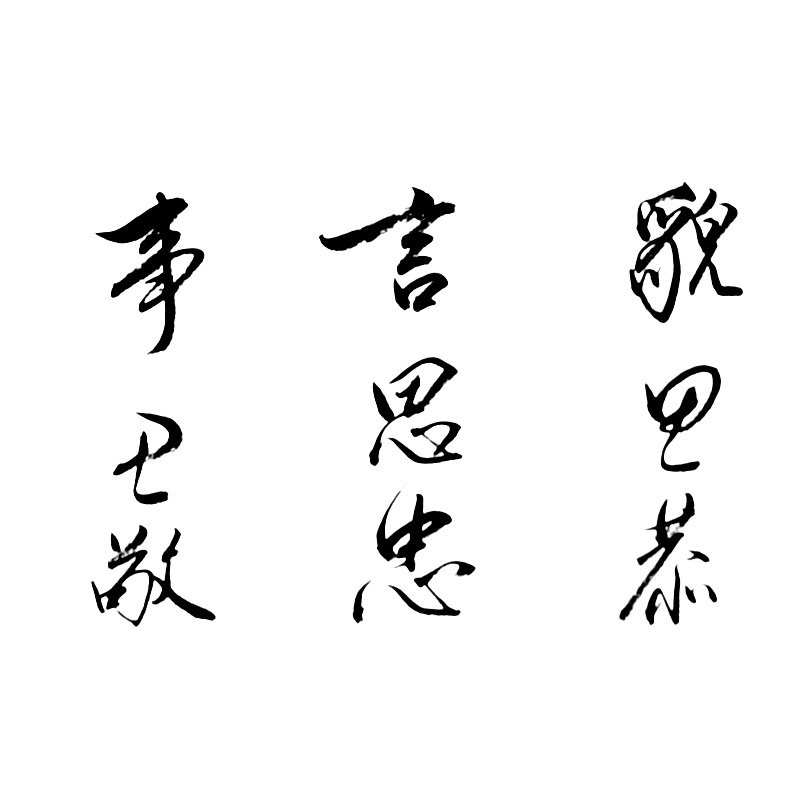 貌思恭
言思忠
事思敬